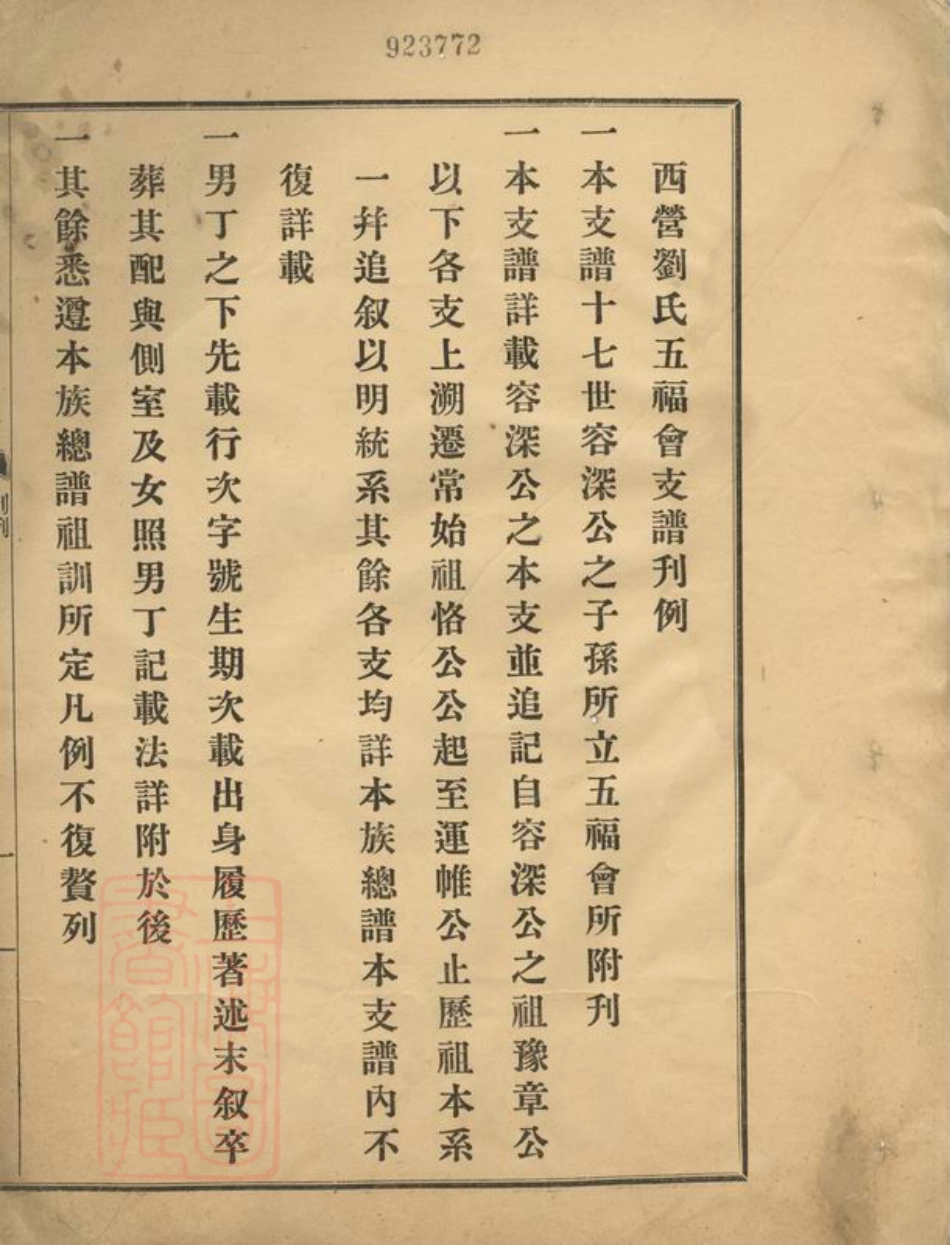 923772
西營劉氏五福會支譜刊例
一本支譜十七世容深公之子孫所立五福會所附刊
一本支譜詳載容深公之本支並追記自容深公之祖豫章公
以下各支上溯遷常始祖恪公公起至運帷公止歷祖本系
一幷追叙以明統系其餘各支均詳本族總譜本支譜內不
復詳載
一男丁之下先載行次字號生期次載出身履歷著述末叙卒
葬其配與側室及女照男丁記載法詳附於後
一其餘悉遵本族總譜祖訓所定凡例不復贅列